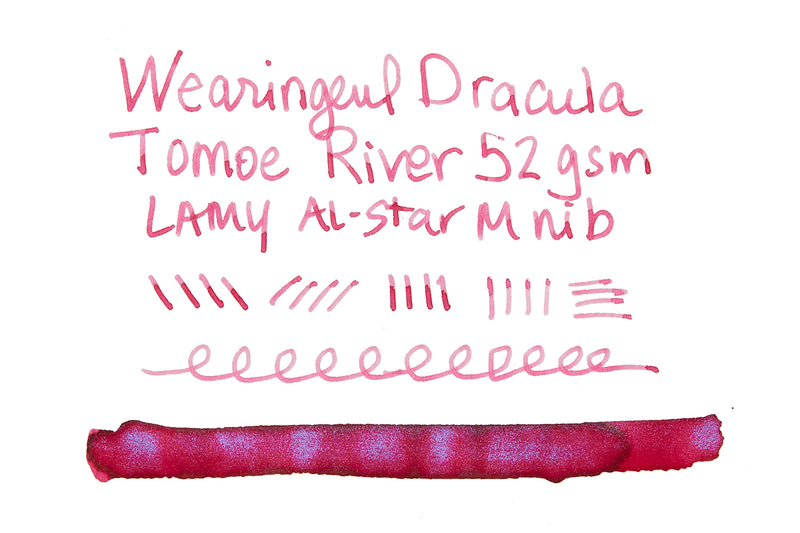 Wearingeul Dracula
Tomoe River 52 gsm
LAMY Al-Star M nib